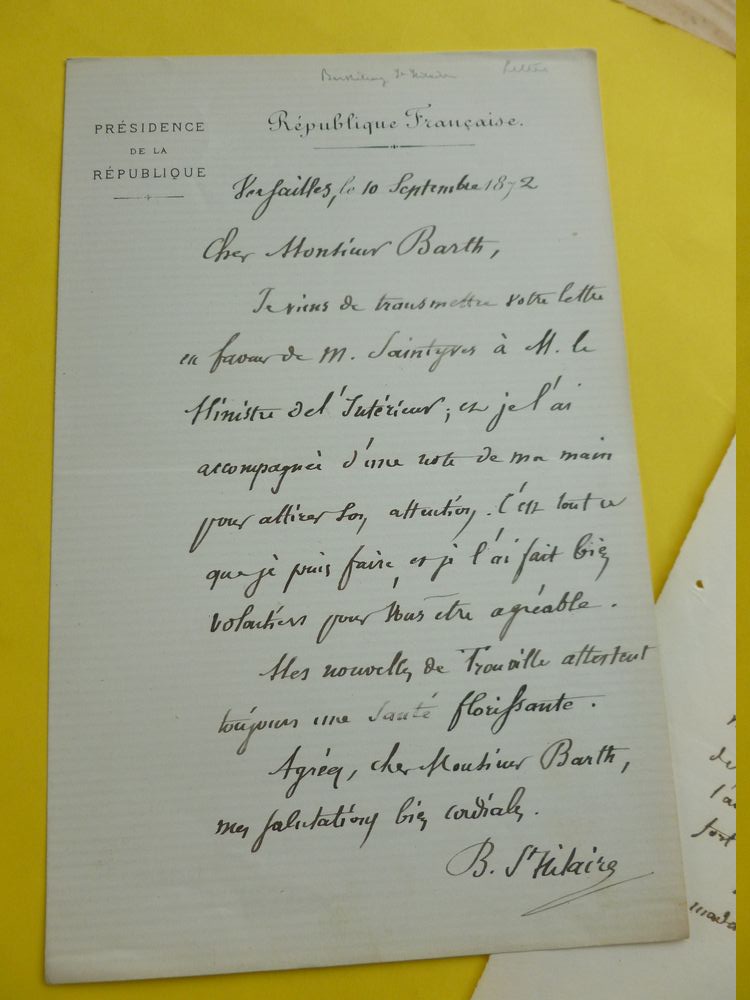 Barthélemy St Hilaire
PRÉSIDENCE
DE LA
RÉPUBLIQUE
République Française.
Versailles, le 10 Septembre 1872
Cher Monsieur Barth,
Je viens de transmettre votre lettre
en faveur de M. Saintyves à M. le
Ministre de l'Intérieur ; et je l'ai
accompagnée d'une note de ma main
pour attirer son attention. C'est tout ce
que je puis faire, et je l'ai fait bien
volontiers pour vous être agréable.
Mes nouvelles de Trouville attestent
toujours une santé florissante.
Agréez, cher Monsieur Barth,
mes salutations bien cordiales.
B. St Hilaire